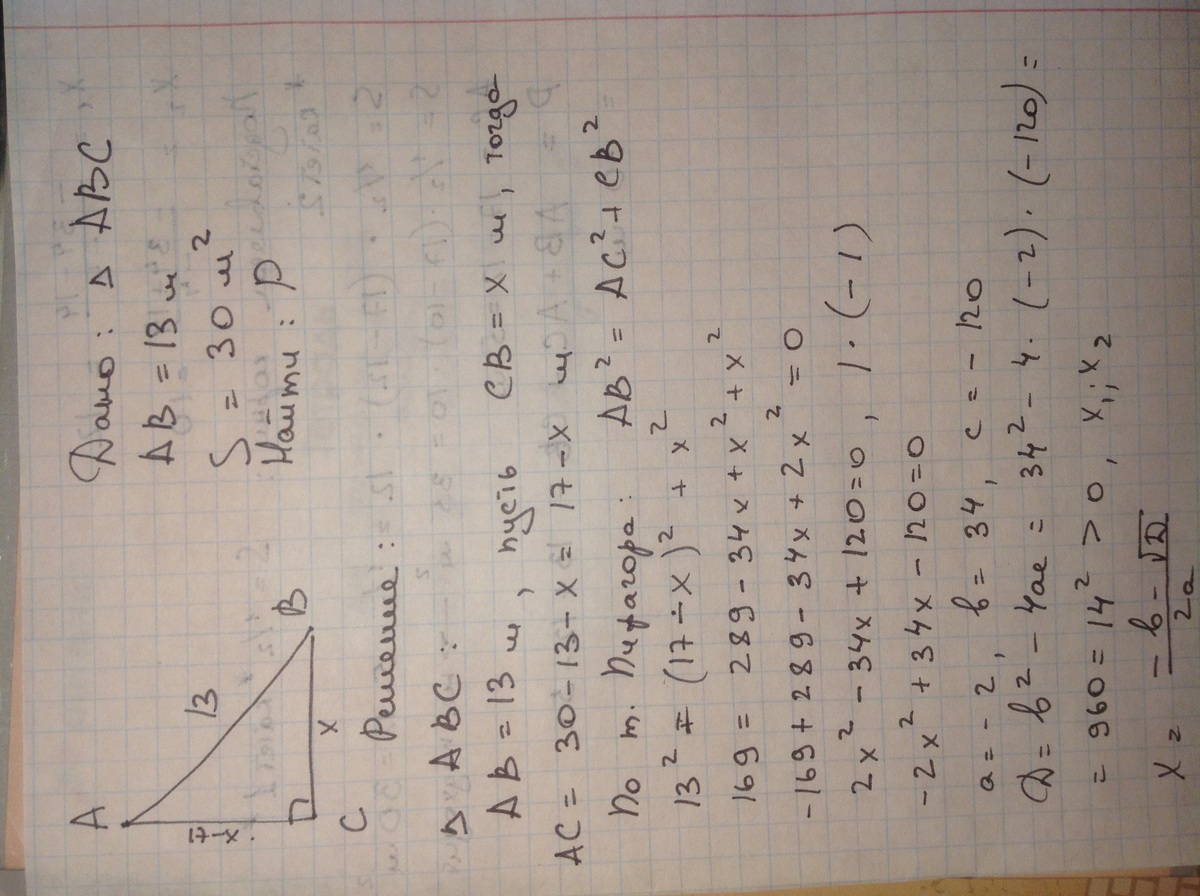 A
13
x
B
C
x
Дано: Δ ABC
AB = 13 м
S = 30 м²
Найти: P
Решение:
Δ ABC:
AB = 13 м, пусть CB = x м, тогда
AC = 30 - 13 - x = 17 - x м
По т. Пифагора: AB² = AC² + CB²
13² = (17 - x)² + x²
169 = 289 - 34x + x² + x²
-169 + 289 - 34x + 2x² = 0
2x² - 34x + 120 = 0, | · (-1)
-2x² + 34x - 120 = 0
a = -2, b = 34, c = -120
D = b² - 4ac = 34² - 4 · (-2) · (-120) =
= 960 = 14² > 0, x₁; x₂
x = - b - √D / 2a